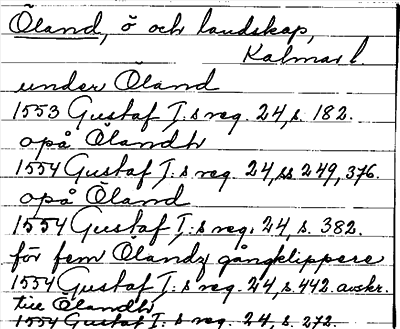 Öland, ö och landskap,
Kalmar l.
under Öland
1553 Gustaf I:s reg. 24, s. 182.
opå Ölandh
1554 Gustaf I:s reg. 24, ss 249, 376.
opå Öland
1554 Gustaf I:s reg. 24, s. 382.
för fem Ölandz gångklippere
1554 Gustaf I:s reg. 24, s. 442. avskr.
till Ölandh
1554 Gustaf I:s reg. 24, s. 272.